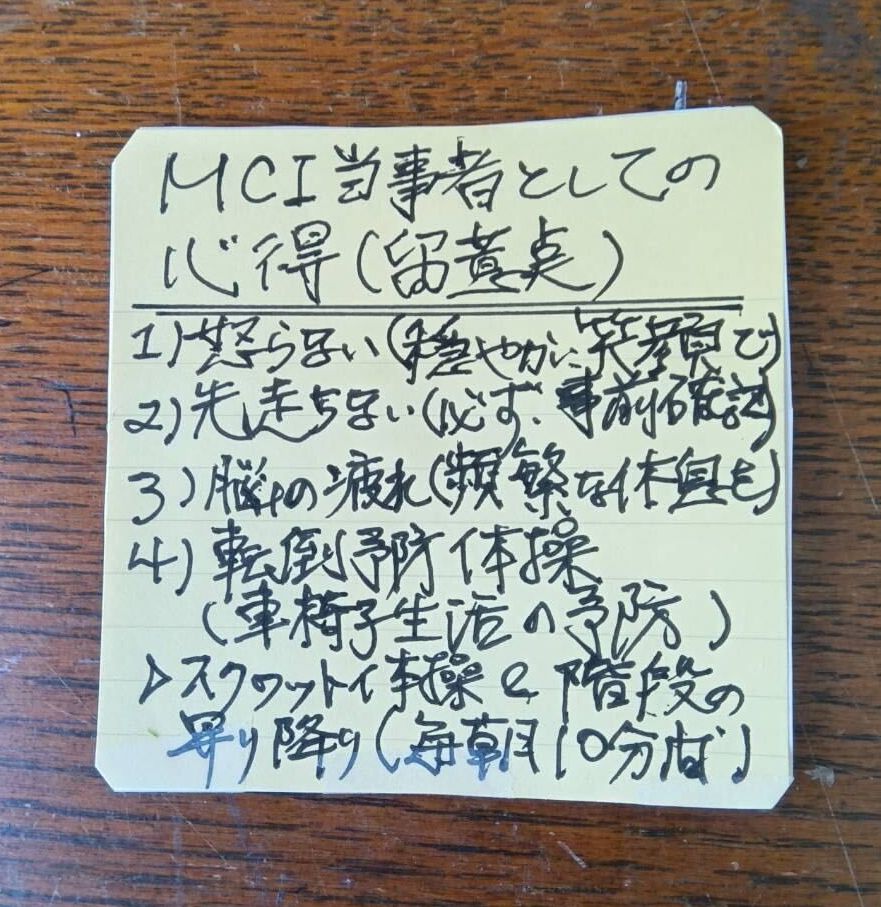 MCI当事者としての
心得(留意点)
1)怒らない(穏やかに笑顔で)
2)先走らない(必ず、事前確認)
3)脳の疲れ(頻繁な休息を)
4)転倒予防体操
(車椅子生活の予防)
▷スクワット体操と階段の
昇り降り(毎朝10分間)